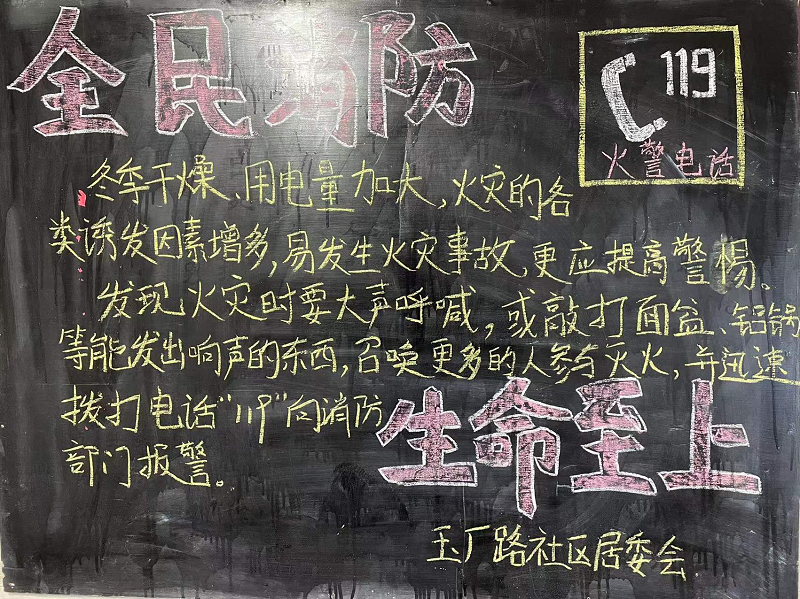 全民消防
119
火警电话
冬季干燥、用电量加大,火灾的各
类诱发因素增多,易发生火灾事故,更应提高警惕。
发现火灾时要大声呼喊,或敲打面盆、铝锅
等能发出响声的东西,召唤更多的人参与灭火,并迅速
拨打电话“119”向消防
部门报警。
生命至上
玉厂路社区居委会